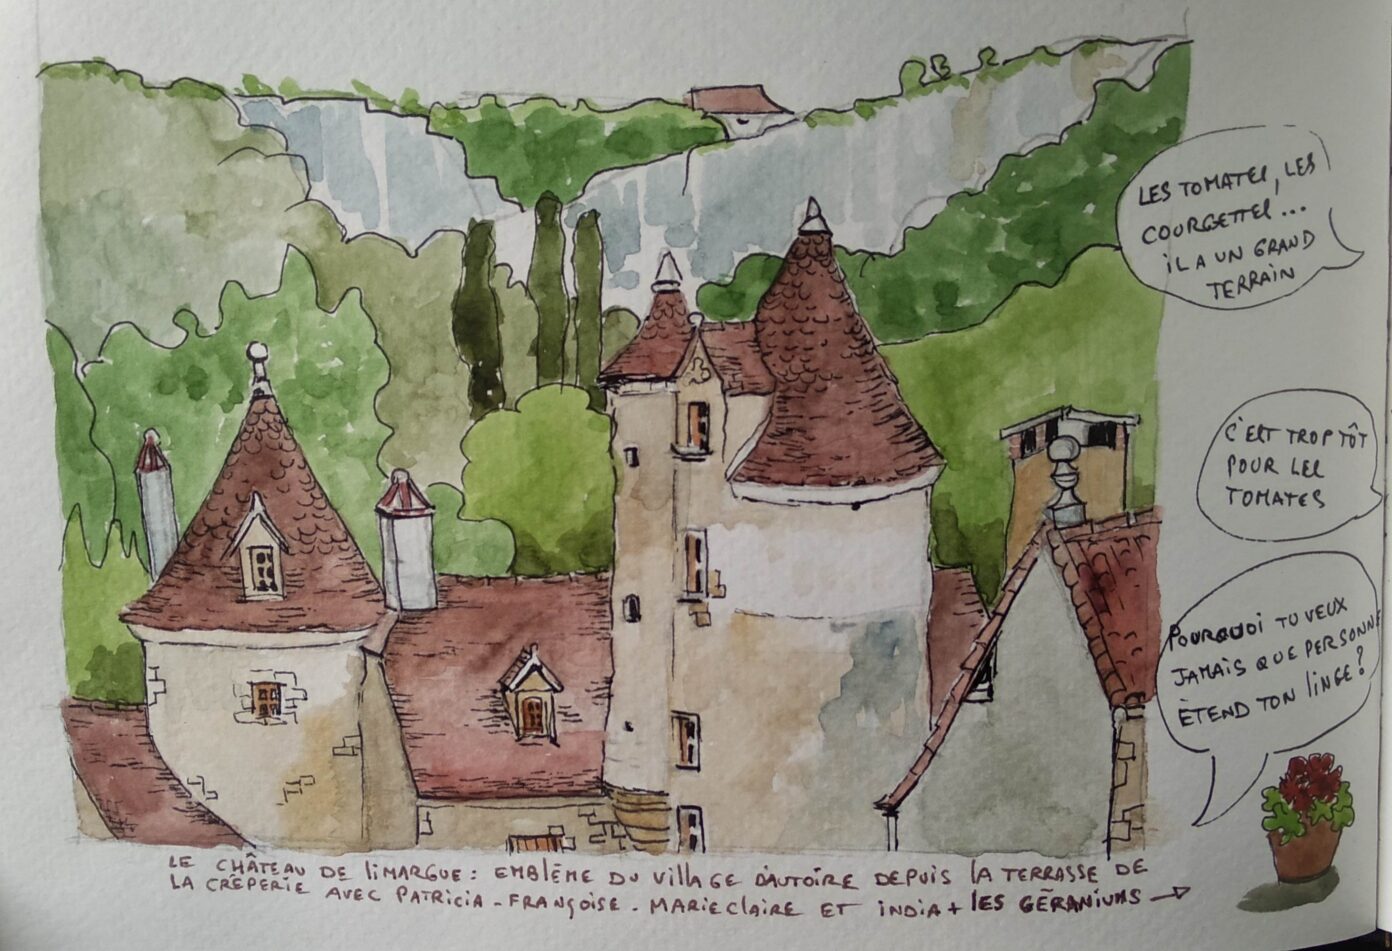 LES TOMATES, LES
COURGETTES...
IL A UN GRAND
TERRAIN
C'EST TROP TÔT
POUR LES
TOMATES
POURQUOI TU VEUX
JAMAIS QUE PERSONNE
ÈTEND TON LINGE?
LE CHÂTEAU DE LIMARGUE: EMBLÈME DU VILLAGE D'AUTOIRE DEPUIS LA TERRASSE DE
LA CRÊPERIE AVEC PATRICIA - FRANÇOISE - MARIECLAIRE ET INDIA + LES GÉRANIUMS →